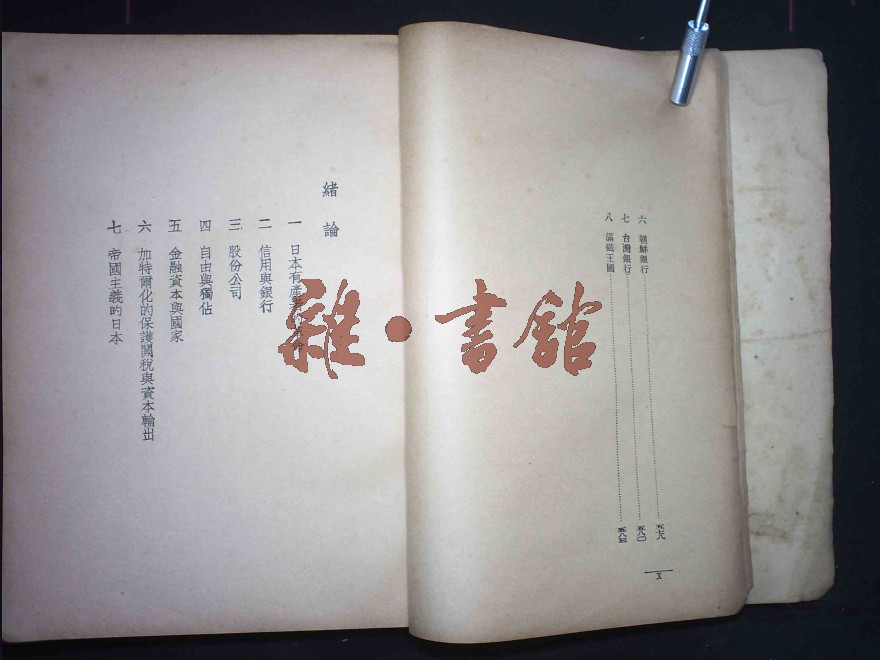 六 朝鮮銀行……五七八
七 台灣銀行……五八〇
八 滿鐵王國……五八三
X
緒論
一 日本有產者的
二 信用與銀行
三 股份公司
四 自由與獨佔
五 金融資本與國家
六 加特爾化的保護關稅與資本輸出
七 帝國主義的日本
雜·書館